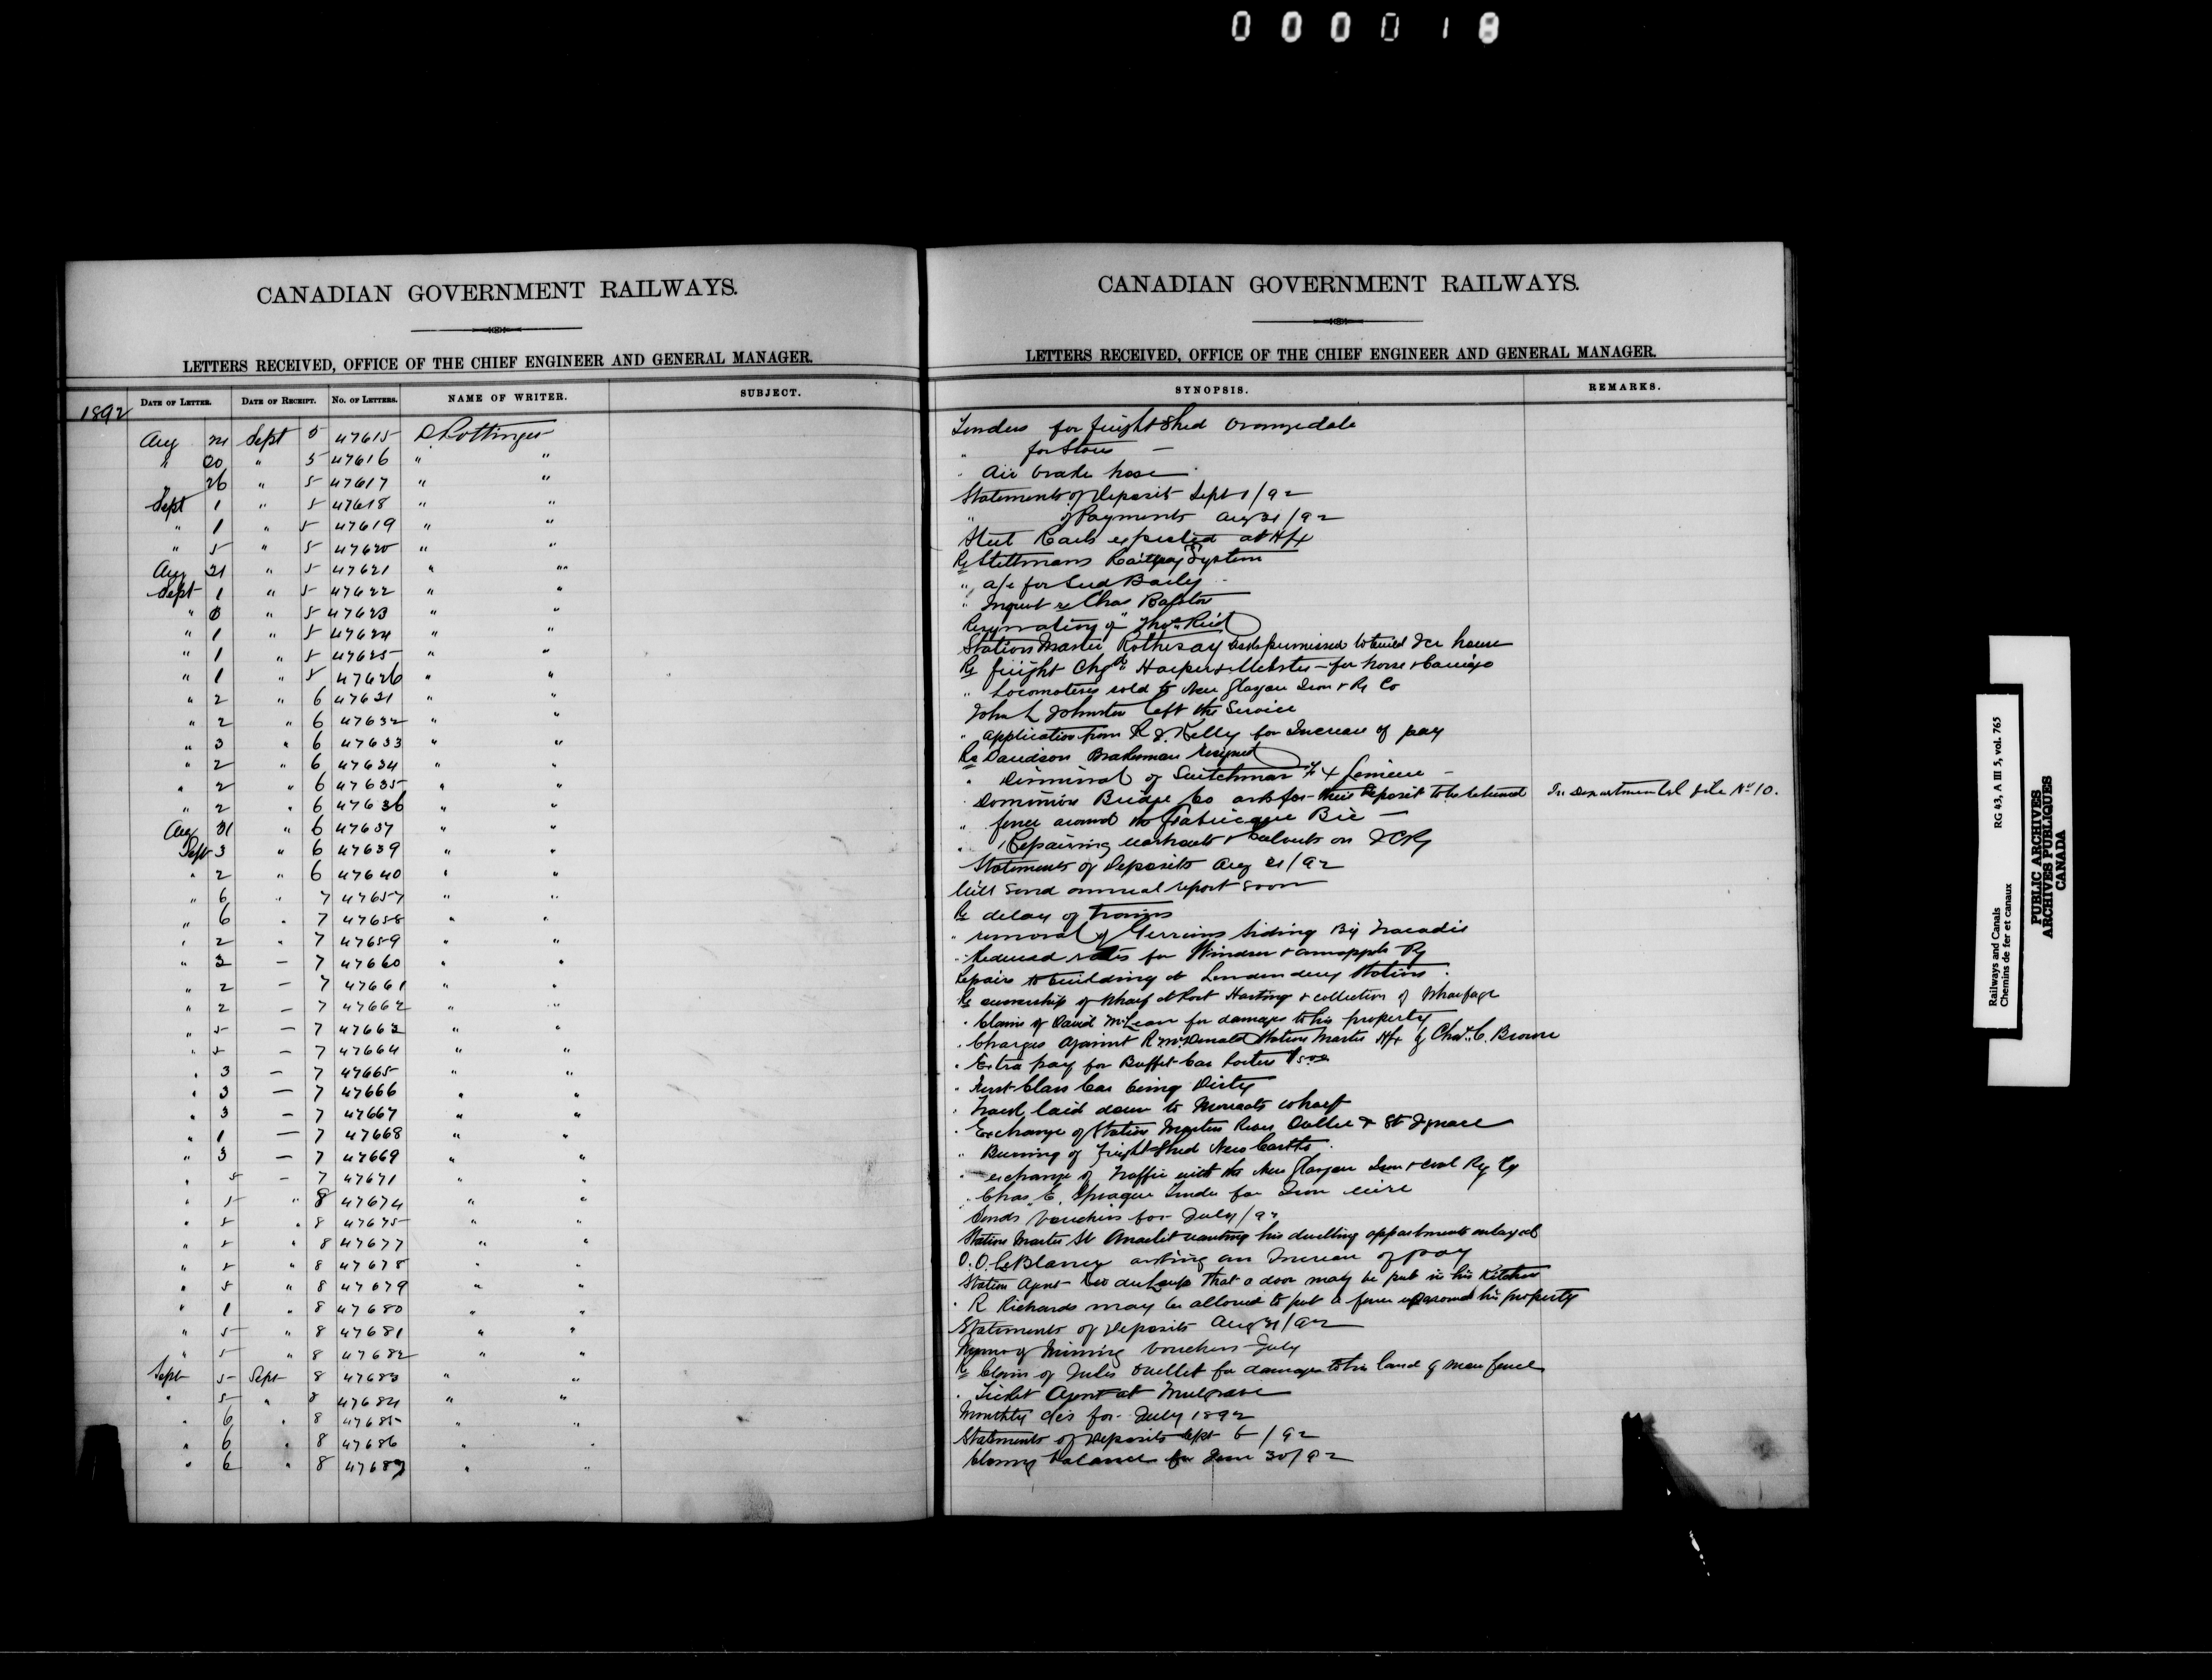 000018
CANADIAN GOVERNMENT RAILWAYS.
LETTERS RECEIVED, OFFICE OF THE CHIEF ENGINEER AND GENERAL MANAGER.
1892 DATE OF LETTER. DATE OF RECEIPT. NO. OF LETTERS. NAME OF WRITER. SUBJECT.
Aug Sept 5 47615 D. Pottinger
" 20 " 5 47616 " "
" 26 " 5 47617 " "
Sept 1 " 5 47618 " "
" 1 " 5 47619 " "
" 5 " 5 47620 " "
Aug 31 " 5 47621 " "
Sept 1 " 5 47622 " "
" " 5 47623 " "
" 1 " 5 47624 " "
" 1 " 5 47625 " "
" 1 " 5 47626 " "
" 2 " 6 47631 " "
" 2 " 6 47632 " "
" 3 " 6 47633 " "
" 2 " 6 47634 " "
" 2 " 6 47635 " "
" 2 " 6 47636 " "
Aug 31 " 6 47637 " "
Sept 3 " 6 47639 " "
" 2 " 6 47640 " "
" 6 " 7 47657 " "
" 6 " 7 47658 " "
" 2 " 7 47659 " "
" 3 - 7 47660 " "
" 2 - 7 47661 " "
" 2 - 7 47662 " "
" 5 - 7 47663 " "
" 5 - 7 47664 " "
" 3 - 7 47665 " "
" 3 - 7 47666 " "
" 3 - 7 47667 " "
" 1 - 7 47668 " "
" 3 - 7 47669 " "
" 5 - 7 47671 " "
" 5 " 8 47674 " "
" 5 " 8 47675 " "
" 5 " 8 47677 " "
" 5 " 8 47678 " "
" 5 " 8 47679 " "
" 1 " 8 47680 " "
" 5 " 8 47681 " "
" 5 " 8 47682 " "
Sept 5 Sept 8 47683 " "
" 5 " 8 47684 " "
" 6 " 8 47685 " "
" 6 " 8 47686 " "
" 6 " 8 47687 " "
CANADIAN GOVERNMENT RAILWAYS.
LETTERS RECEIVED, OFFICE OF THE CHIEF ENGINEER AND GENERAL MANAGER.
SYNOPSIS. REMARKS.
Tenders for freight Shed Orangedale
" for Stores -
" Air brake hose
Statements of Deposit Sept 1/92
" of Payments Aug 31/92
Steel Rails expected at Hfx
Re Stettmans Railway System
" a/c for
" Inquest re Chas
Resignation of Thos Reid
Station Master Rothesay asks permission to build Ice house
Re freight Chgs Harper & Webster - for horse & Carriage
" Locomotives sold to New Glasgow Iron & Ry Co
John L Johnston left the Service
" application from R J. Kelly for Increase of pay
Re Davidson Brakeman resigned
" Dismissal of Switchman F X Lemieux -
" Dominion Bridge Co ask for their deposit to be returned In Departmental file No 10.
" fence around the Fabrique Bic -
" Repairing & Culverts on I C Ry
Statements of Deposits Aug 31/92
Will Send annual report soon
Re delay of trains
" removal of siding Big Tracadie
" Reduced rates for Windsor & Annapolis Ry
Repairs to building at Londonderry Station
Re ownership of wharf at Port Hastings & collection of Wharfage
" Claim of David McLean for damages to his property
" Charges against R McDonald Station Master Hfx by Chas. C. Brown
" Extra pay for Buffet Car Porters
" First Class Car being Dirty
" Track laid down to wharf
" Exchange of Station Masters River Ouelle & St Ignace
" Burning of Freight Shed New Castle
" exchange of Traffic with the New Glasgow Iron & Coal Ry Co
" Chas E. Sprague Tender for Iron wire
Sends Vouchers for July/92
Station Master St Anaclet wanting his dwelling appartments enlarged
O. O. LeBlanc asking an Increase of pay
Station Agent Riv du Loup that a door may be put in his Kitchen
" R Richards may be allowed to put a fence up around his property
Statements of Deposits Aug 31/92
Vouchers July
Re Claim of Jules Ouellet for damages to his land
" Ticket Agent at Mulgrave
Monthly a/cs for July 1892
Statements of Deposits Sept 6/92
Closing balances for June 30/92
Railways and Canals RG 43, A III 5, vol. 765
Chemins de fer et canaux
PUBLIC ARCHIVES
ARCHIVES PUBLIQUES
CANADA